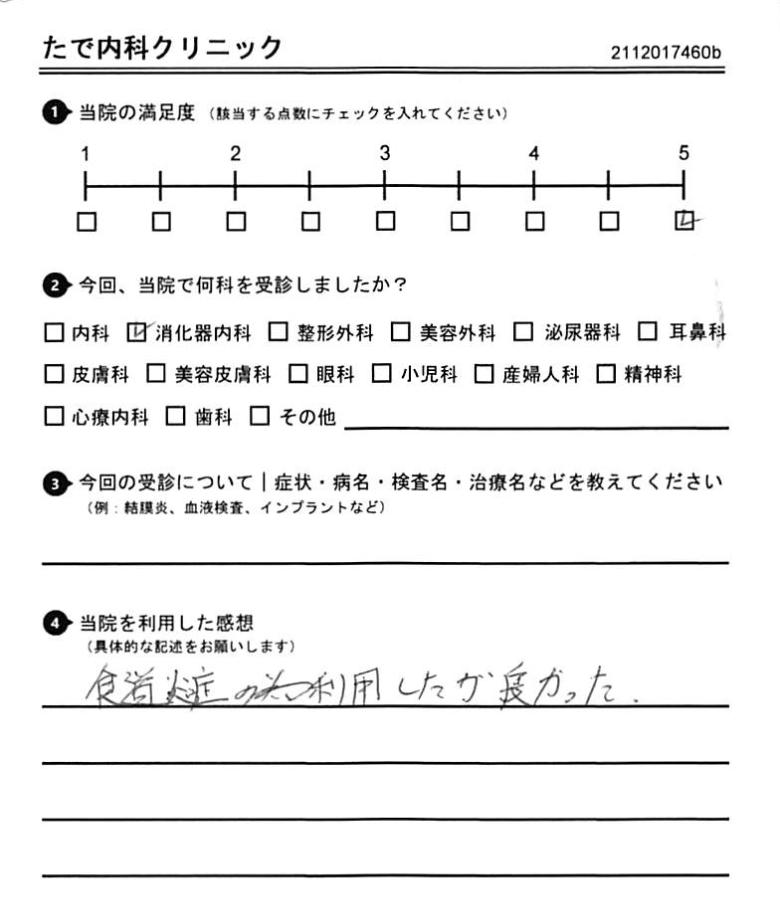 たで内科クリニック 2112017460b
1 当院の満足度 (該当する点数にチェックを入れてください)
1 2 3 4 5
□ □ □ □ □ □ □ □ ☑
2 今回、当院で何科を受診しましたか?
□ 内科 ☑ 消化器内科 □ 整形外科 □ 美容外科 □ 泌尿器科 □ 耳鼻科
□ 皮膚科 □ 美容皮膚科 □ 眼科 □ 小児科 □ 産婦人科 □ 精神科
□ 心療内科 □ 歯科 □ その他
3 今回の受診について|症状・病名・検査名・治療名などを教えてください
(例:結膜炎、血液検査、インプラントなど)
4 当院を利用した感想
(具体的な記述をお願いします)
食道炎症の為利用したが良かった.